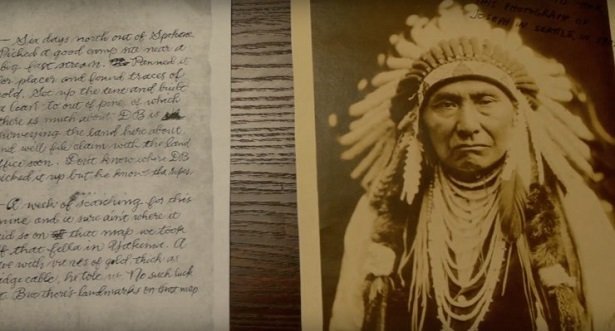 — Six days north out of Spokane
Piched a good camp site near a
big fast stream. Panned it
for placer and found traces of
gold. Set up the tent and built
a lean to out of pine, of which
there is much about. DB is
surveying the land here about.
and well file claim with the land
office soon. Dont know where DB
picked it up but he knows the ropes.
— A week of searching for this
mine and it sure aint where it
said so on that map we took
off that fella in Yakema. A
with veines of gold thick as
cable, he told us. No such luck
But there's landmarks on that map
THIS PHOTOGRAPH OF
JOSEPH IN SEATTLE, IN